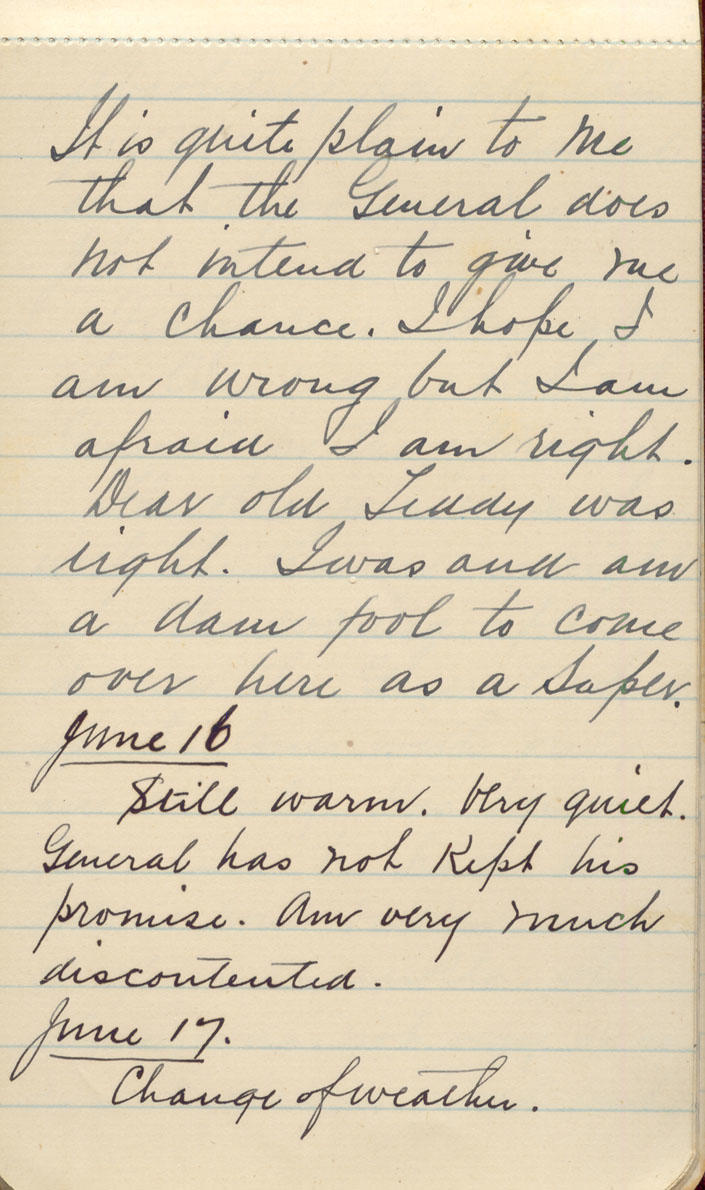 It is quite plain to me
that the General does
not intend to give me
a chance. I hope I
am wrong but I am
afraid I am right.
Dear old Teddy was
right. I was and am
a dam fool to come
over here as a Super.
June 16
Still warm. Very quiet.
General has not kept his
promise. Am very much
discontented.
June 17.
Change of weather.